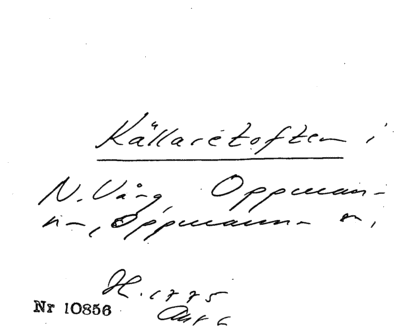 Källaretoften i
N. Vång, Oppman-
n-, Oppmanna- s,
H. 1775
Akt 6
Nr 10856